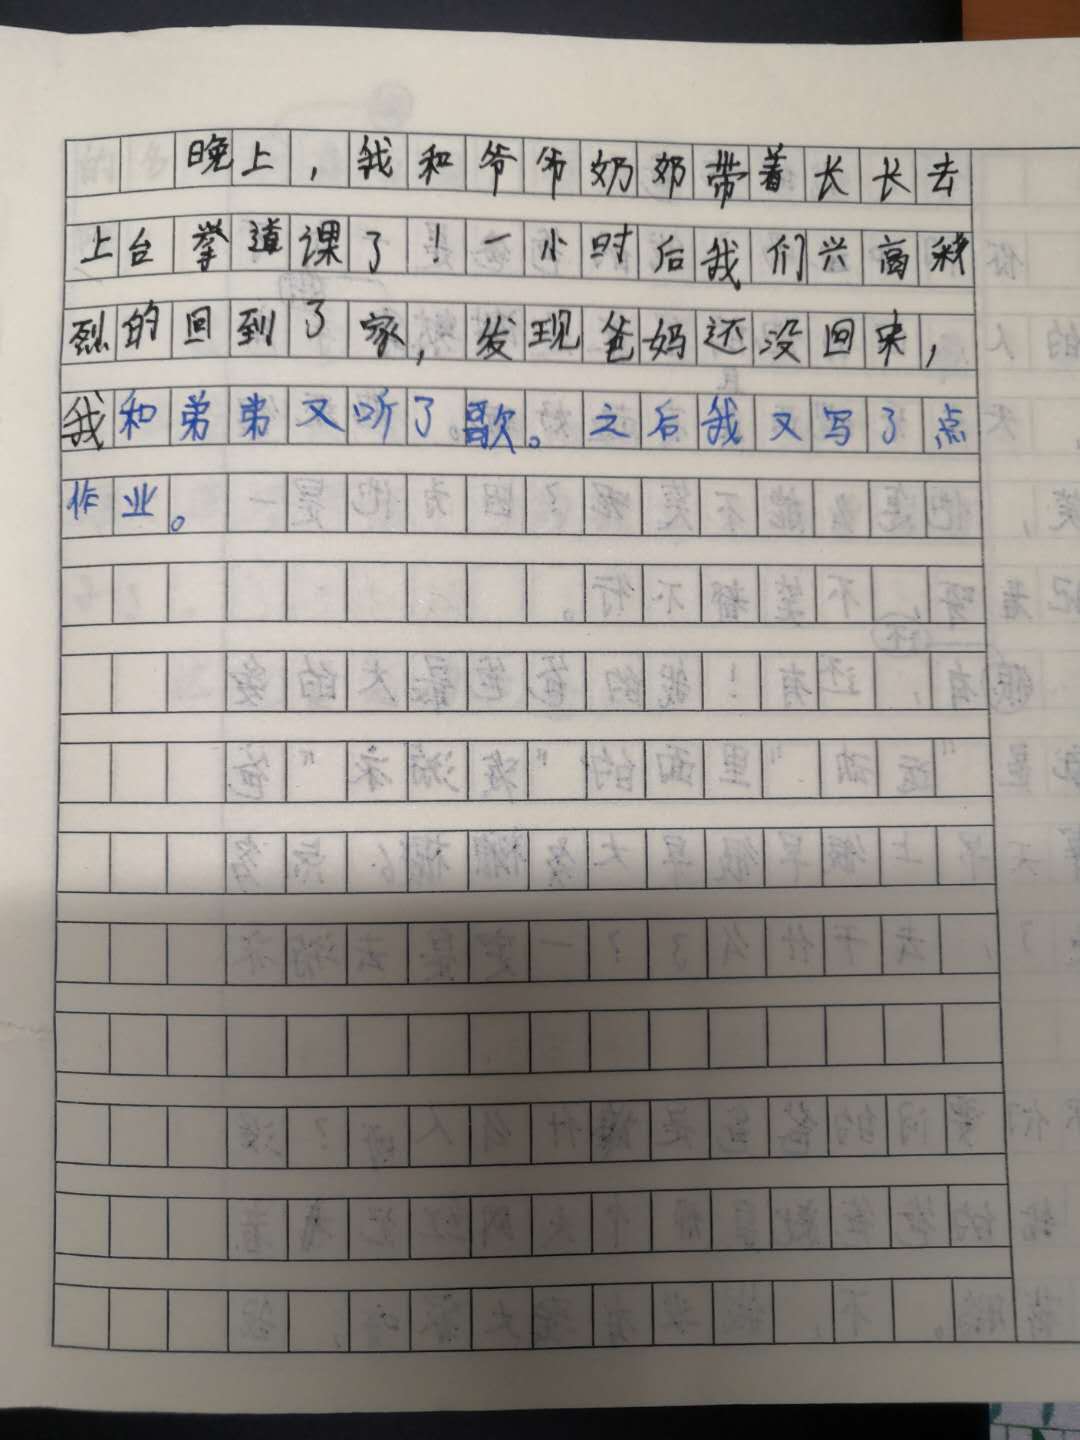 晚上，我和爷爷奶奶带着长长去
上台拳道课了！一小时后我们兴高彩
烈的回到了家，发现爸妈还没回来，
我和弟弟又听了歌。之后我又写了点
作业。